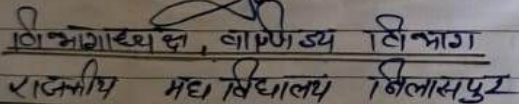 विभागाध्यक्ष, वाणिज्य विभाग
राजकीय महाविद्यालय बिलासपुर